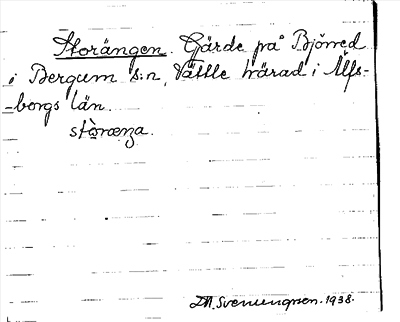 Storängen. Gjärde på Björred
i Bergum s:n, Vättle härad i Älfs-
-borgs län.
stòræŋa.
D.M. Svenungsson. 1938.